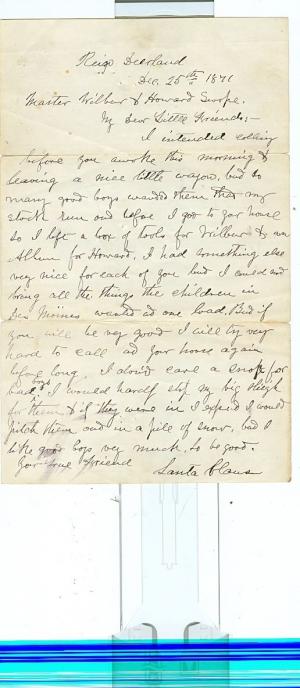 Reign Deerland
Dec. 25th 1871
Master Wilber & Howard Swope.
My Dear Little Friends:-
I intended calling
before you awoke this morning &
leaving a nice little wagon, but so
many good boys wanted them that my
stock run out before I got to your house
so I left a box of tools for Wilber & an
Album for Howard. I had something else
very nice for each of you but I could not
bring all the things the children in
Des Moines wanted at one load. But if
you will be very good I will try very
hard to call at your house again
before long. I don't care a snap for
bad boys & I would hardly stop my big sleigh
for them & if they were in I expect I would
pitch them out in a pile of snow, but I
like good boys very much, so be good.
Your true friend
Santa Claus